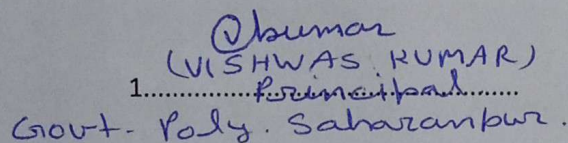 Vkumar
(VISHWAS KUMAR)
1.................Principal.................
Govt- Poly. Saharanpur.